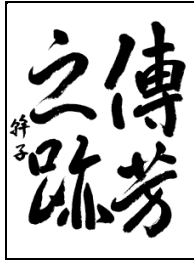 傳芳
之跡
幹子